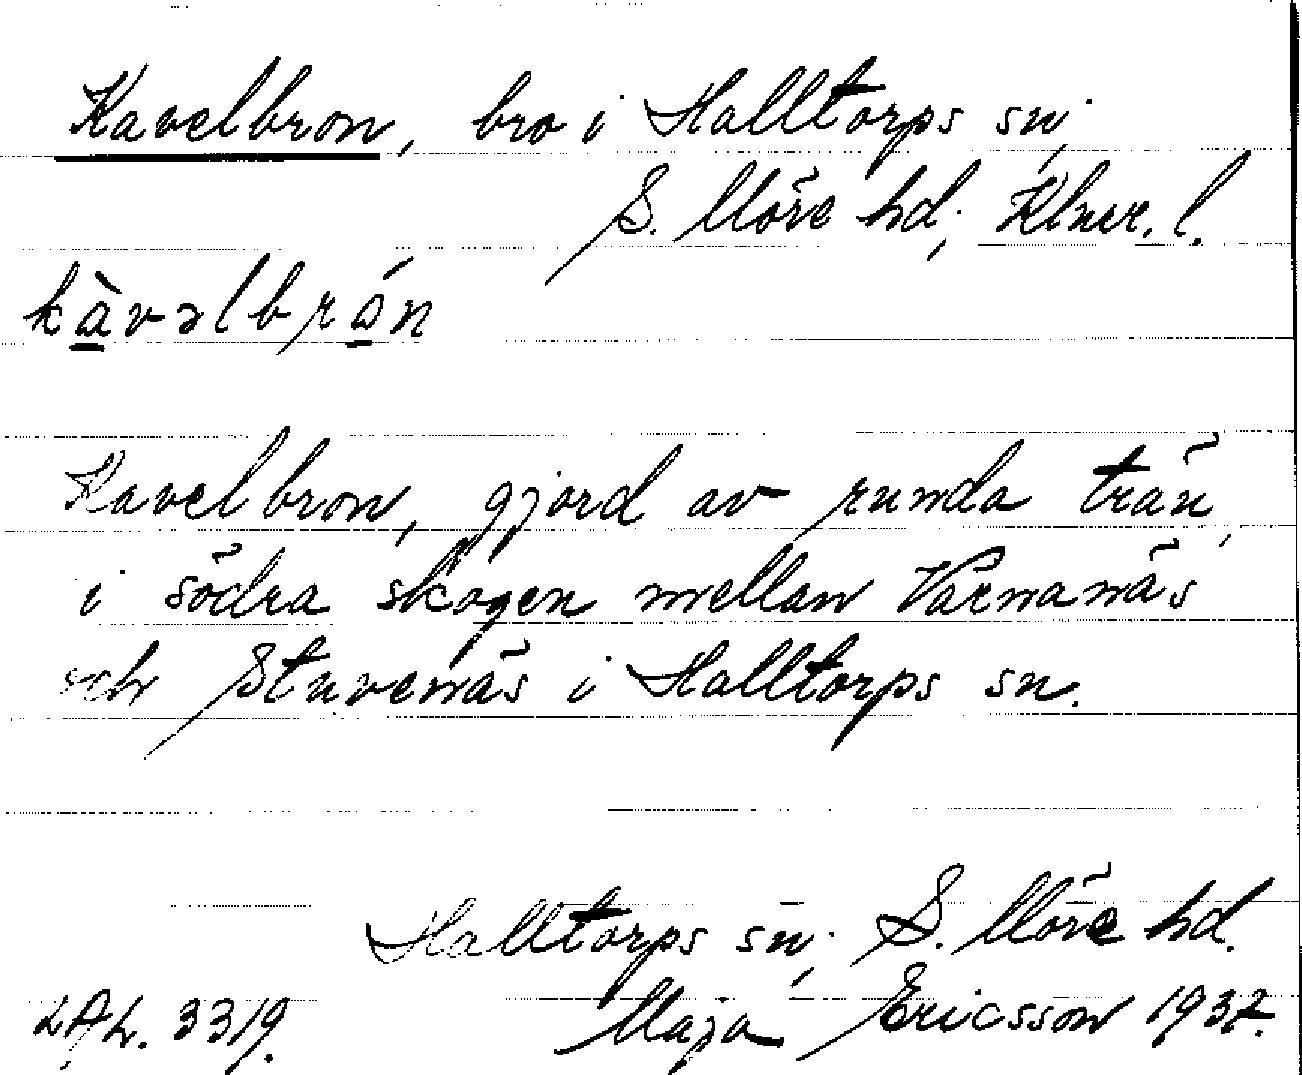 Kavelbron, bro i Halltorps sn,
S. Möre hd, Klmr. l.
kàvəlbrón
Kavelbron, gjord av runda trän,
i södra skogen mellan Värnanäs
och Stuvenäs i Halltorps sn.
Halltorps sn, S. Möre hd.
LAL. 3319. Maja Ericsson 1937.